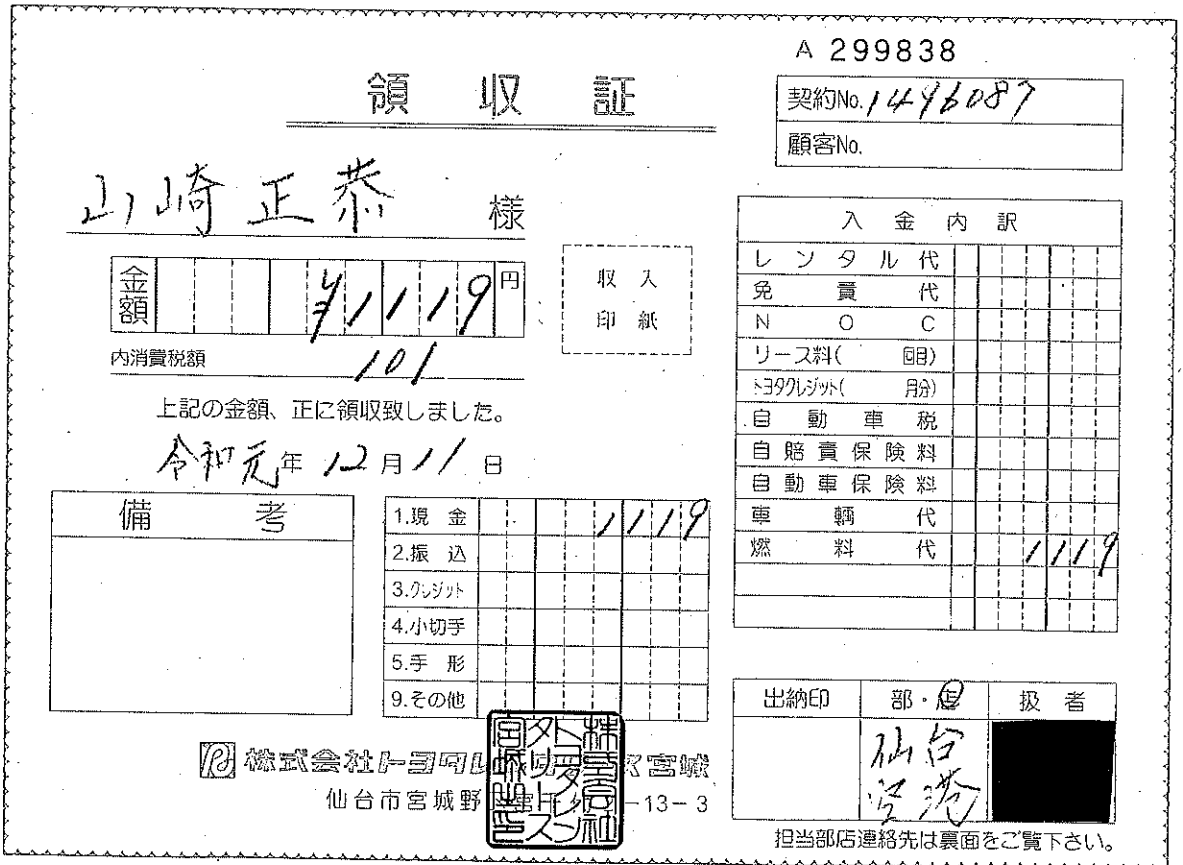 A 299838
領収証
契約No. 1496087
顧客No.
山崎正恭 様
金額 ¥1119 円
内消費税額 101
収入
印紙
上記の金額、正に領収致しました。
令和元年 12月 11日
備考
1.現金 1119
2.振込
3.クレジット
4.小切手
5.手形
9.その他
入金内訳
レンタル代
免責代
NOC
リース料( 回目)
トヨタクレジット( 月分)
自動車税
自賠責保険料
自動車保険料
車輌代
燃料代 1119
出納印 部・店 扱者
仙台
空港
株式会社トヨタレ
ス宮城
仙台市宮城野
-13-3
株式会社
トヨタレン
タリース
宮城
担当部店連絡先は裏面をご覧下さい。